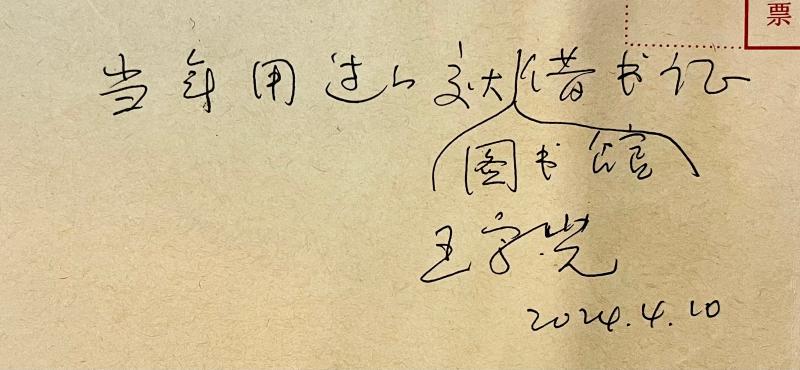 票
当年用过的交大借书证
图书馆
王宗光
2024.4.10